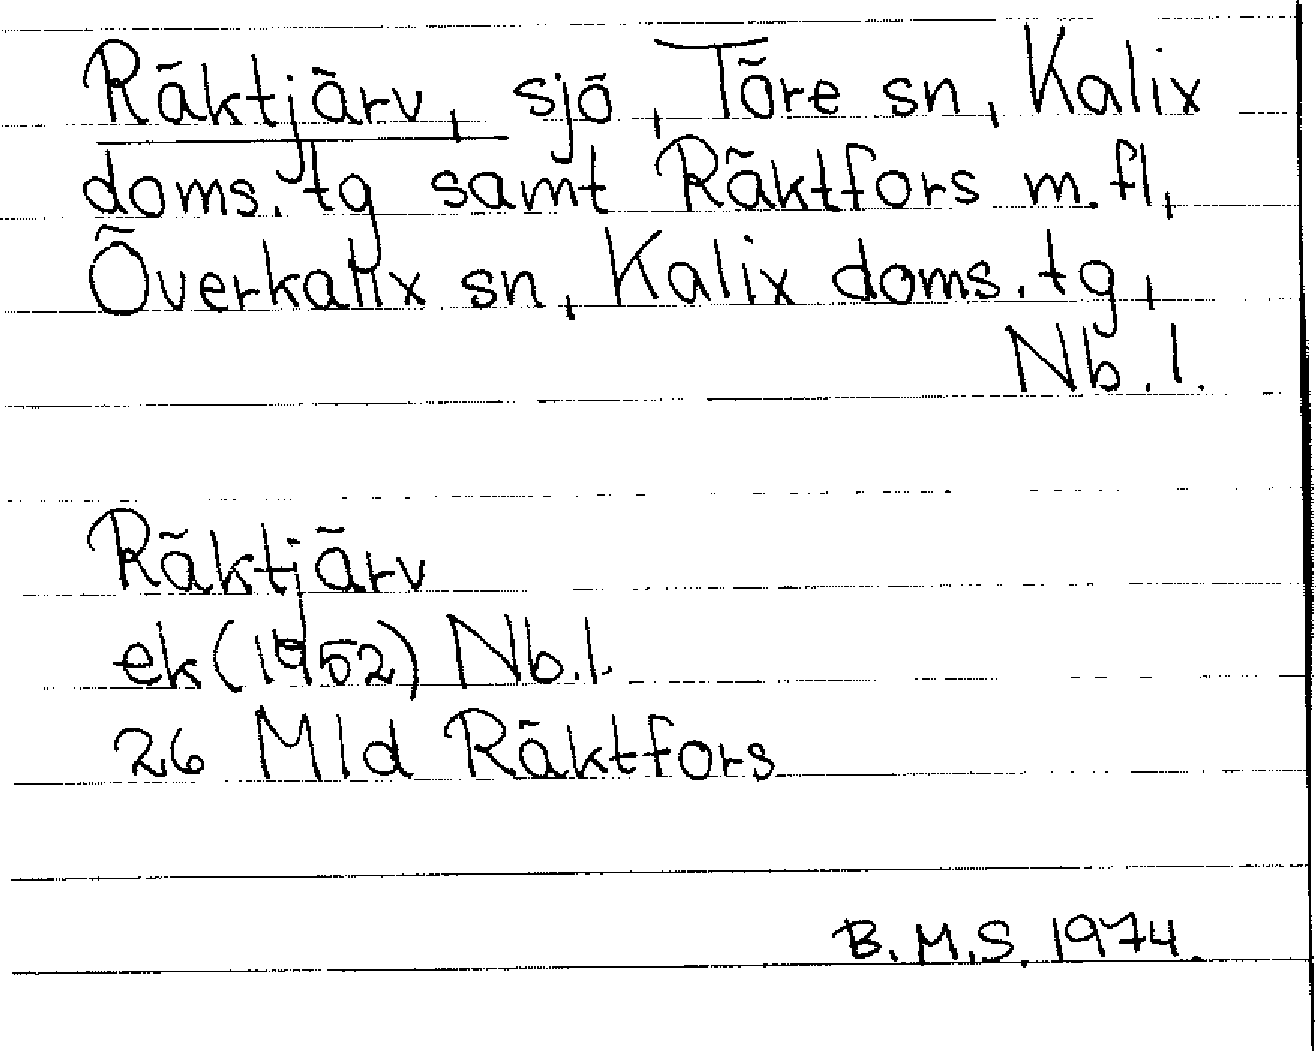 Räktjärv, sjö, Töre sn, Kalix
doms. tg samt Räktfors m. fl,
Överkalix sn, Kalix doms. tg,
Nb. l.
Räktjärv
ek (1952) Nb. l.
26 Mld Räktfors
B. M. S. 1974.